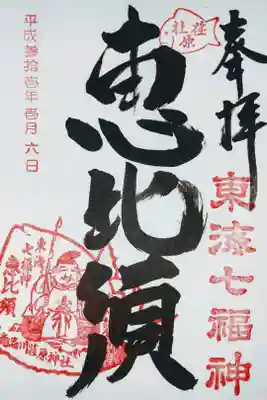 奉拝
荏原
社
東海七福神
恵比須
東海
七福神
恵比須
品川荏原神社
平成参拾壱年壱月六日